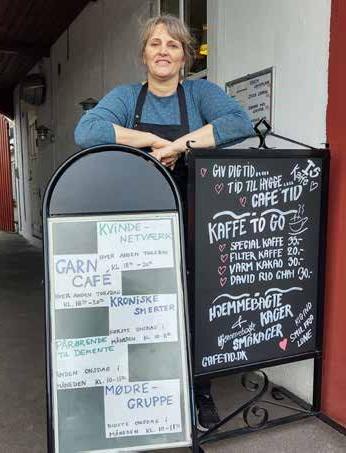 KVINDE-
NETVÆRK
HVER ANDEN TORSDAG
GARN
CAFÉ
HVER ANDEN TORSDAG
KRONISKE
SMERTER
FØRSTE ONSDAG I
MÅNEDEN
PÅRØRENDE
TIL DEMENTE
ANDEN ONSDAG I
MÅNEDEN KL. 10-11
MØDRE-
GRUPPE
SIDSTE ONSDAG I
MÅNEDEN KL. 10-11
GIV DIG TID....
TID TIL HYGGE....
CAFE TID
KAFFE TO GO
SPECIAL KAFFE 35.-
FILTER KAFFE 20.-
VARM KAKAO 30.-
DAVID RIO CHAI 30.-
HJEMMEBAGTE
KAGER
&
SMÅKAGER
CAFETID.DK